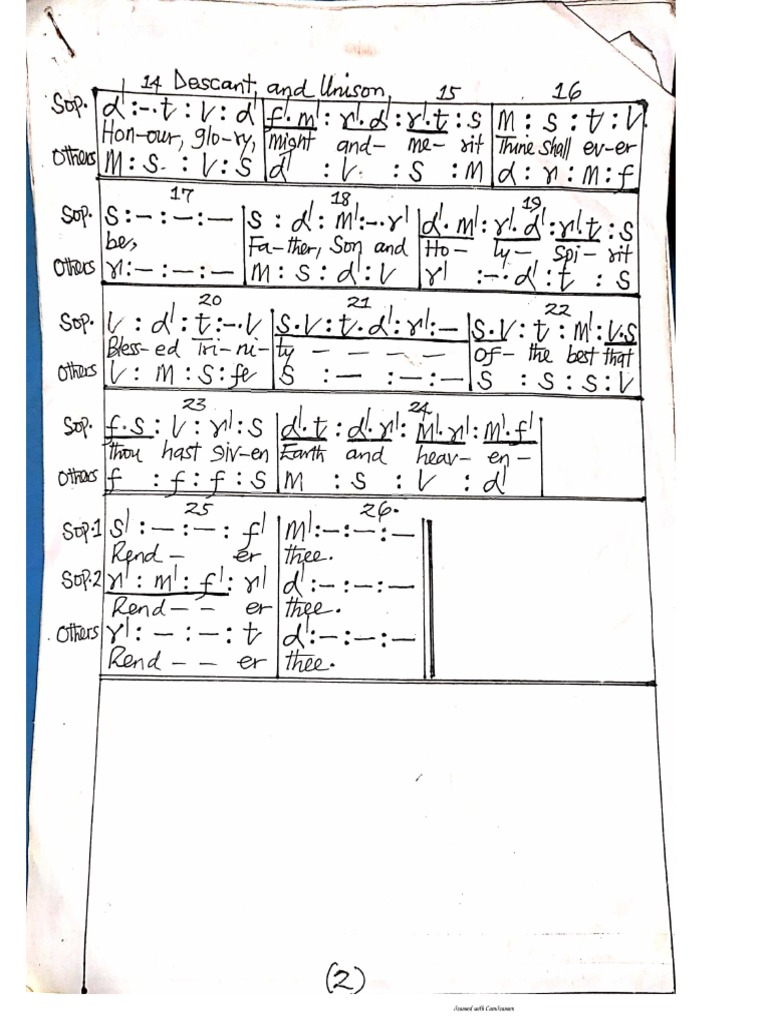 14 Descant, and Unison, 15 16
Sop. d' :-. t : l : d' | f'. m' : r'. d' : r'. t : s | m : s : t : l
Hon-our, glo-ry, might and- me- rit Thine shall ev-er
Others m : s. : l : s | d' : l : s : m | d : r : m : f
17 18 19
Sop. s : — : — : — | s : d' : m' :-. r' | d'. m' : r'. d' : r'. t : s
be, Fa-ther, Son and Ho- ly- Spi- rit
Others r : — : — : — | m : s : d' : l | r' :-. d' : t : s
20 21 22
Sop. l : d' : t :-. l | s. l : t. d' : r' : — | s. l : t : m' : l. s
Bless-ed Tri-ni- ty — — — — Of- the best that
Others l : m : s : fe | s : — : — : — | s : s : s : l
23 24
Sop. f. s : l : r' : s | d'. t : d'. r' : m'. r' : m'. f'
thou hast giv-en Earth and heav- en-
Others f : f : f : s | m : s : l : d'
25 26.
Sop.1 s' : — : — : f' | m' : — : — : —
Rend - er thee.
Sop.2 r' : m' : f' : r' | d' : — : — : —
Rend - - er thee.
Others r' : — : — : t | d' : — : — : —
Rend - - er thee.
(2)
Scanned with CamScanner